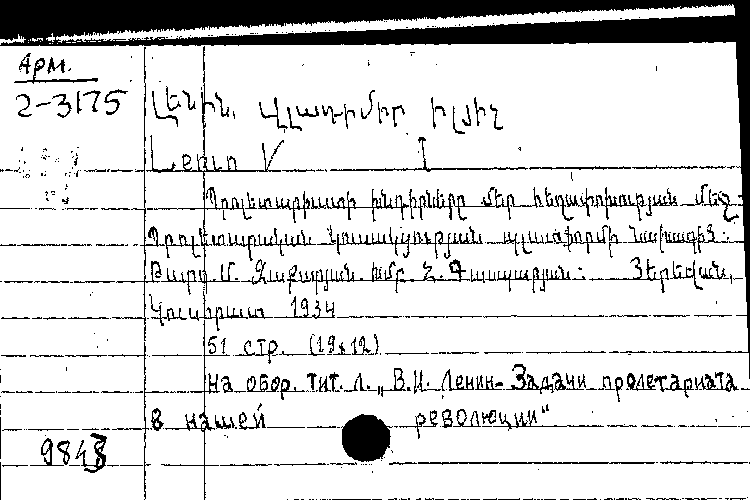 Арм.
2-3175
Լենին, Վլադիմիր Իլյիչ
Լենին V I
Պրոլետարիատի խնդիրները մեր հեղափոխության մեջ:
Պրոլետարական կուսակցության պլատֆորմի նախագիծ:
Թարգ. Մ. Զաքարյան. խմբ. Հ. Գասպարյան: Յերեվան,
Կուսհրատ 1934
51 стр. (19x12)
На обор. тит. л. „В.И. Ленин-Задачи пролетариата
в нашей революции"
9848